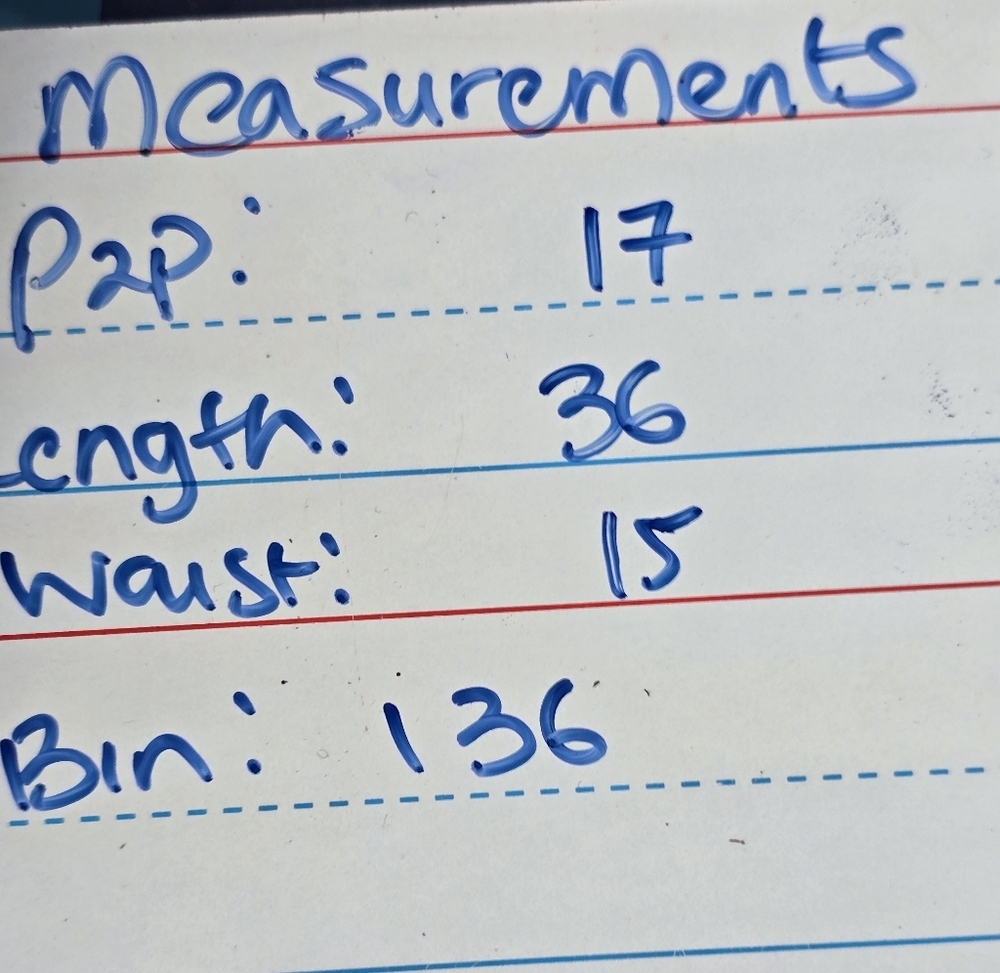 Measurements
P2P: 17
Length: 36
Waist: 15
Bin: 136